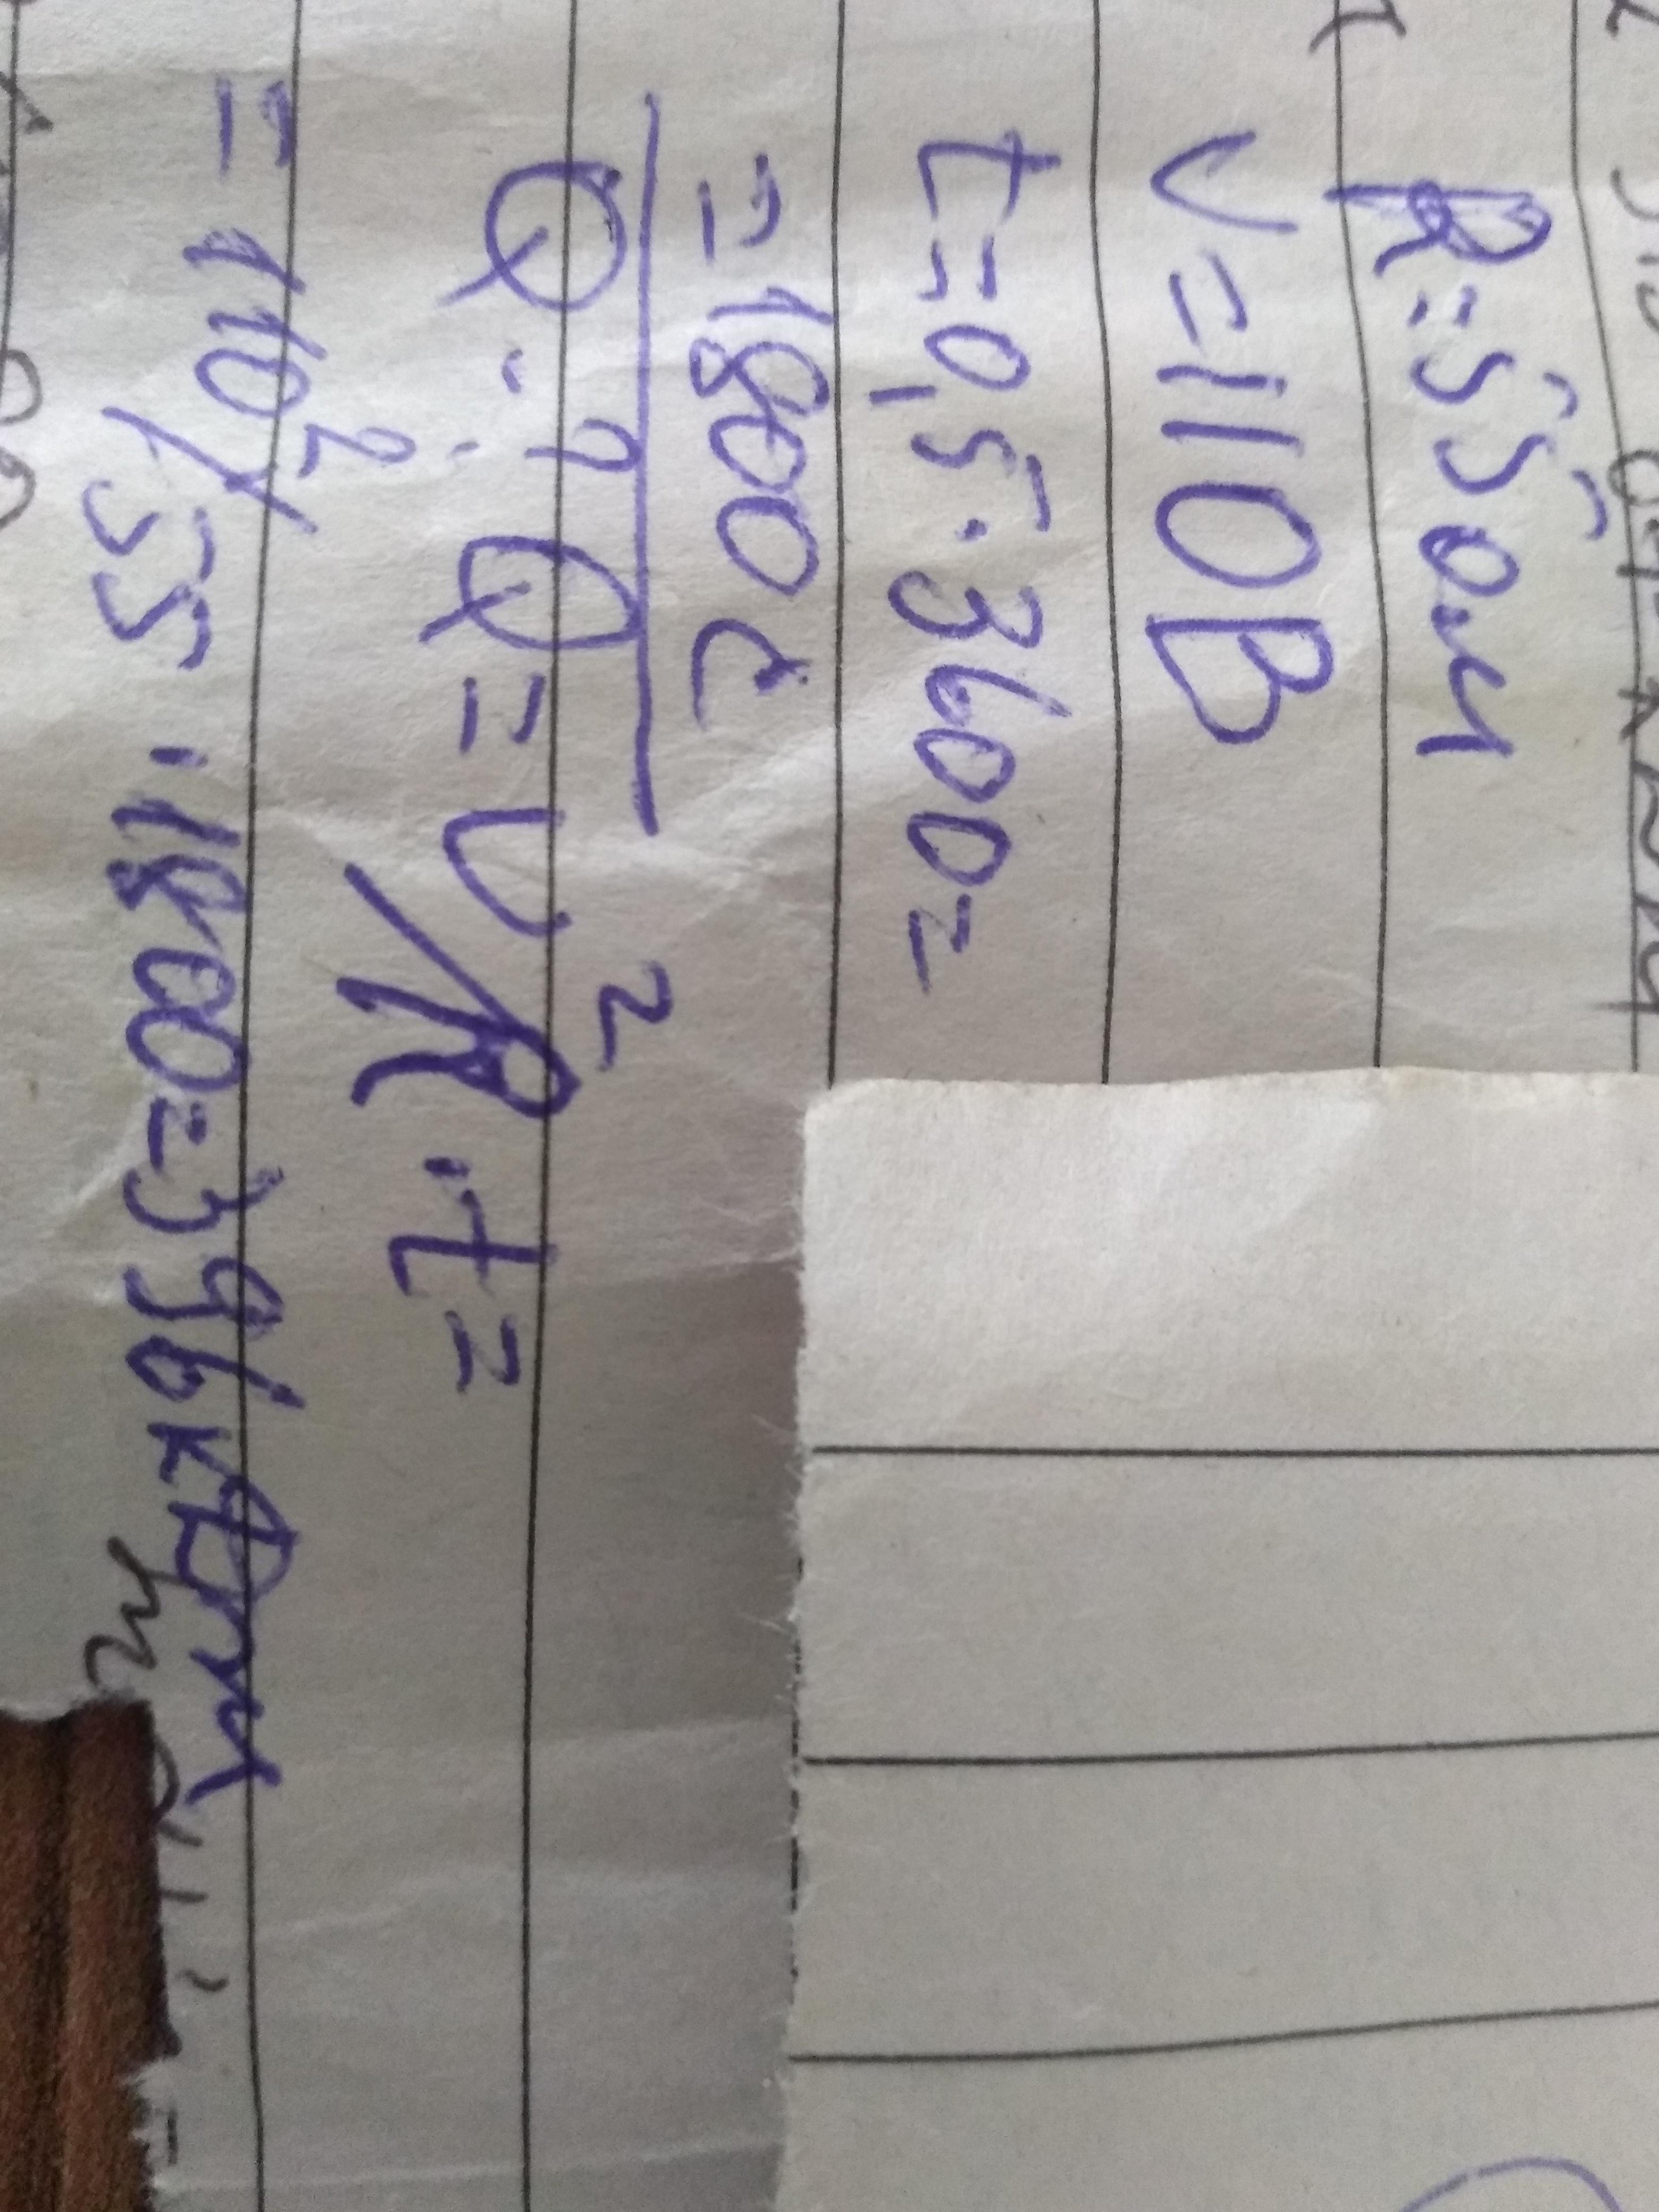 R=55Ом
U=110В
t=0,5·3600=
=1800с
Q-? Q=U²/R·t=
=110²/55·1800=396кДж